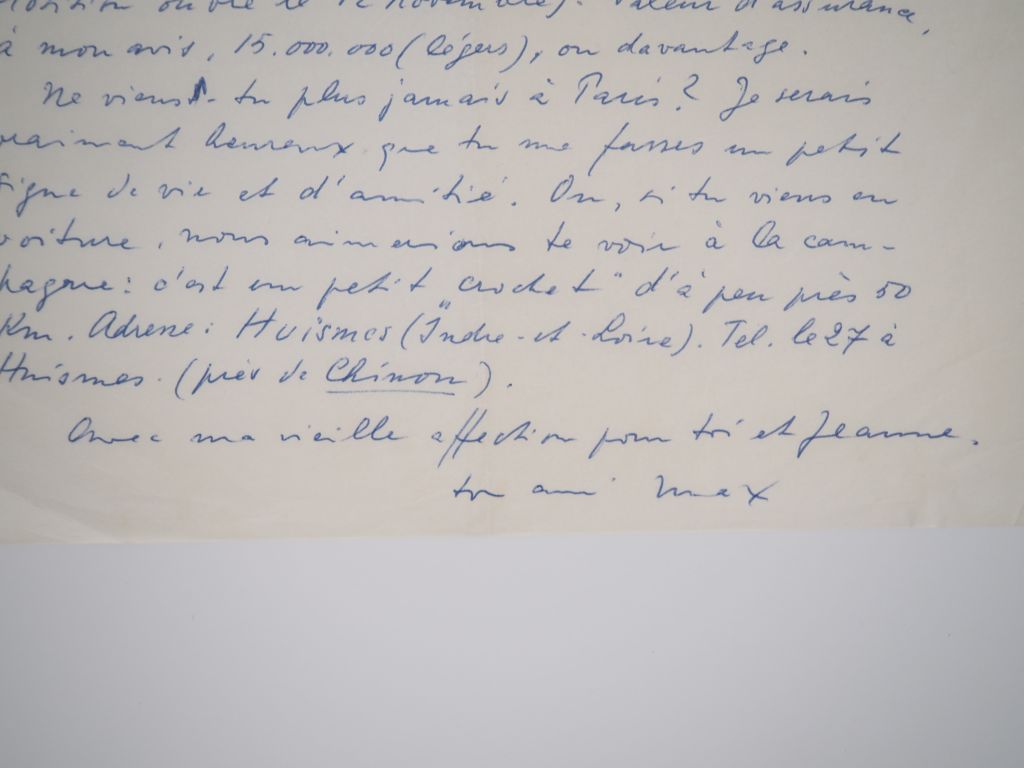 position ouvre le 12 novembre). Valeur d'assurance,
à mon avis, 15.000.000 (légers), ou davantage.
Ne viens-tu plus jamais à Paris? Je serais
vraiment heureux que tu me fasses un petit
signe de vie et d'amitié. Ou, si tu viens en
voiture, nous aimerions te voir à la cam-
pagne: c'est un petit "crochet" d'à peu près 50
Km. Adresse: Huismes (Indre-et-Loire). Tel. le 27 à
Huismes. (près de Chinon).
Avec ma vieille affection pour toi et Jeanne.
ton ami Max